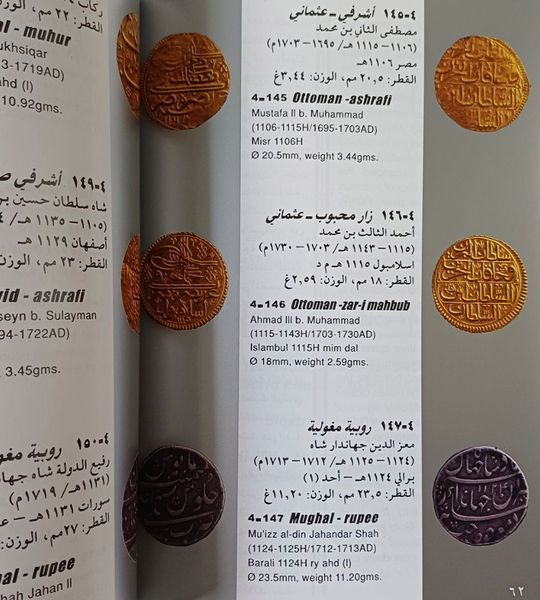 القطر: ٢٢ مم، الو
al - muhur
ukhsiqar
3-1719AD)
ahd (I)
10.92gms.
٤=١٤٩ أشرفي ص
شاه سلطان حسين بر
(١١٠٥– ١١٣٥ هـ/
أصفهان ١١٢٩ هـ
القطر: ٢٣ مم، الوزن
vid - ashrafi
seyn b. Sulayman
94-1722AD)
3.45gms.
٤=١٥٠ روبية مغو
رفيع الدولة شاه جها
(١١٣١هـ/ ١٧١٩م)
سورات ١١٣١هـ –
القطر: ٢٧مم، الوزن:
al - rupee
hah Jahan II
٤=١٤٥ أشرفي – عثماني
مصطفى الثاني بن محمد
(١١٠٦– ١١١٥ هـ/ ١٦٩٥– ١٧٠٣م)
مصر ١١٠٦هـ
القطر: ٢٠,٥ مم، الوزن: ٣,٤٤غ
4=145 Ottoman -ashrafi
Mustafa II b. Muhammad
(1106-1115H/1695-1703AD)
Misr 1106H
Ø 20.5mm, weight 3.44gms.
٤=١٤٦ زار محبوب – عثماني
أحمد الثالث بن محمد
(١١١٥– ١١٤٣ هـ/ ١٧٠٣– ١٧٣٠م)
اسلامبول ١١١٥ هـ م د
القطر: ١٨ مم، الوزن: ٢,٥٩غ
4=146 Ottoman -zar-i mahbub
Ahmad III b. Muhammad
(1115-1143H/1703-1730AD)
Islambul 1115H mim dal
Ø 18mm, weight 2.59gms.
٤=١٤٧ روبية مغولية
معز الدين جهاندار شاه
(١١٢٤– ١١٢٥ هـ/ ١٧١٢– ١٧١٣م)
برالي ١١٢٤هـ – أحد (١)
القطر: ٢٣,٥ مم، الوزن: ١١,٢٠غ
4=147 Mughal - rupee
Mu'izz al-din Jahandar Shah
(1124-1125H/1712-1713AD)
Barali 1124H ry ahd (I)
Ø 23.5mm, weight 11.20gms.
٦٢